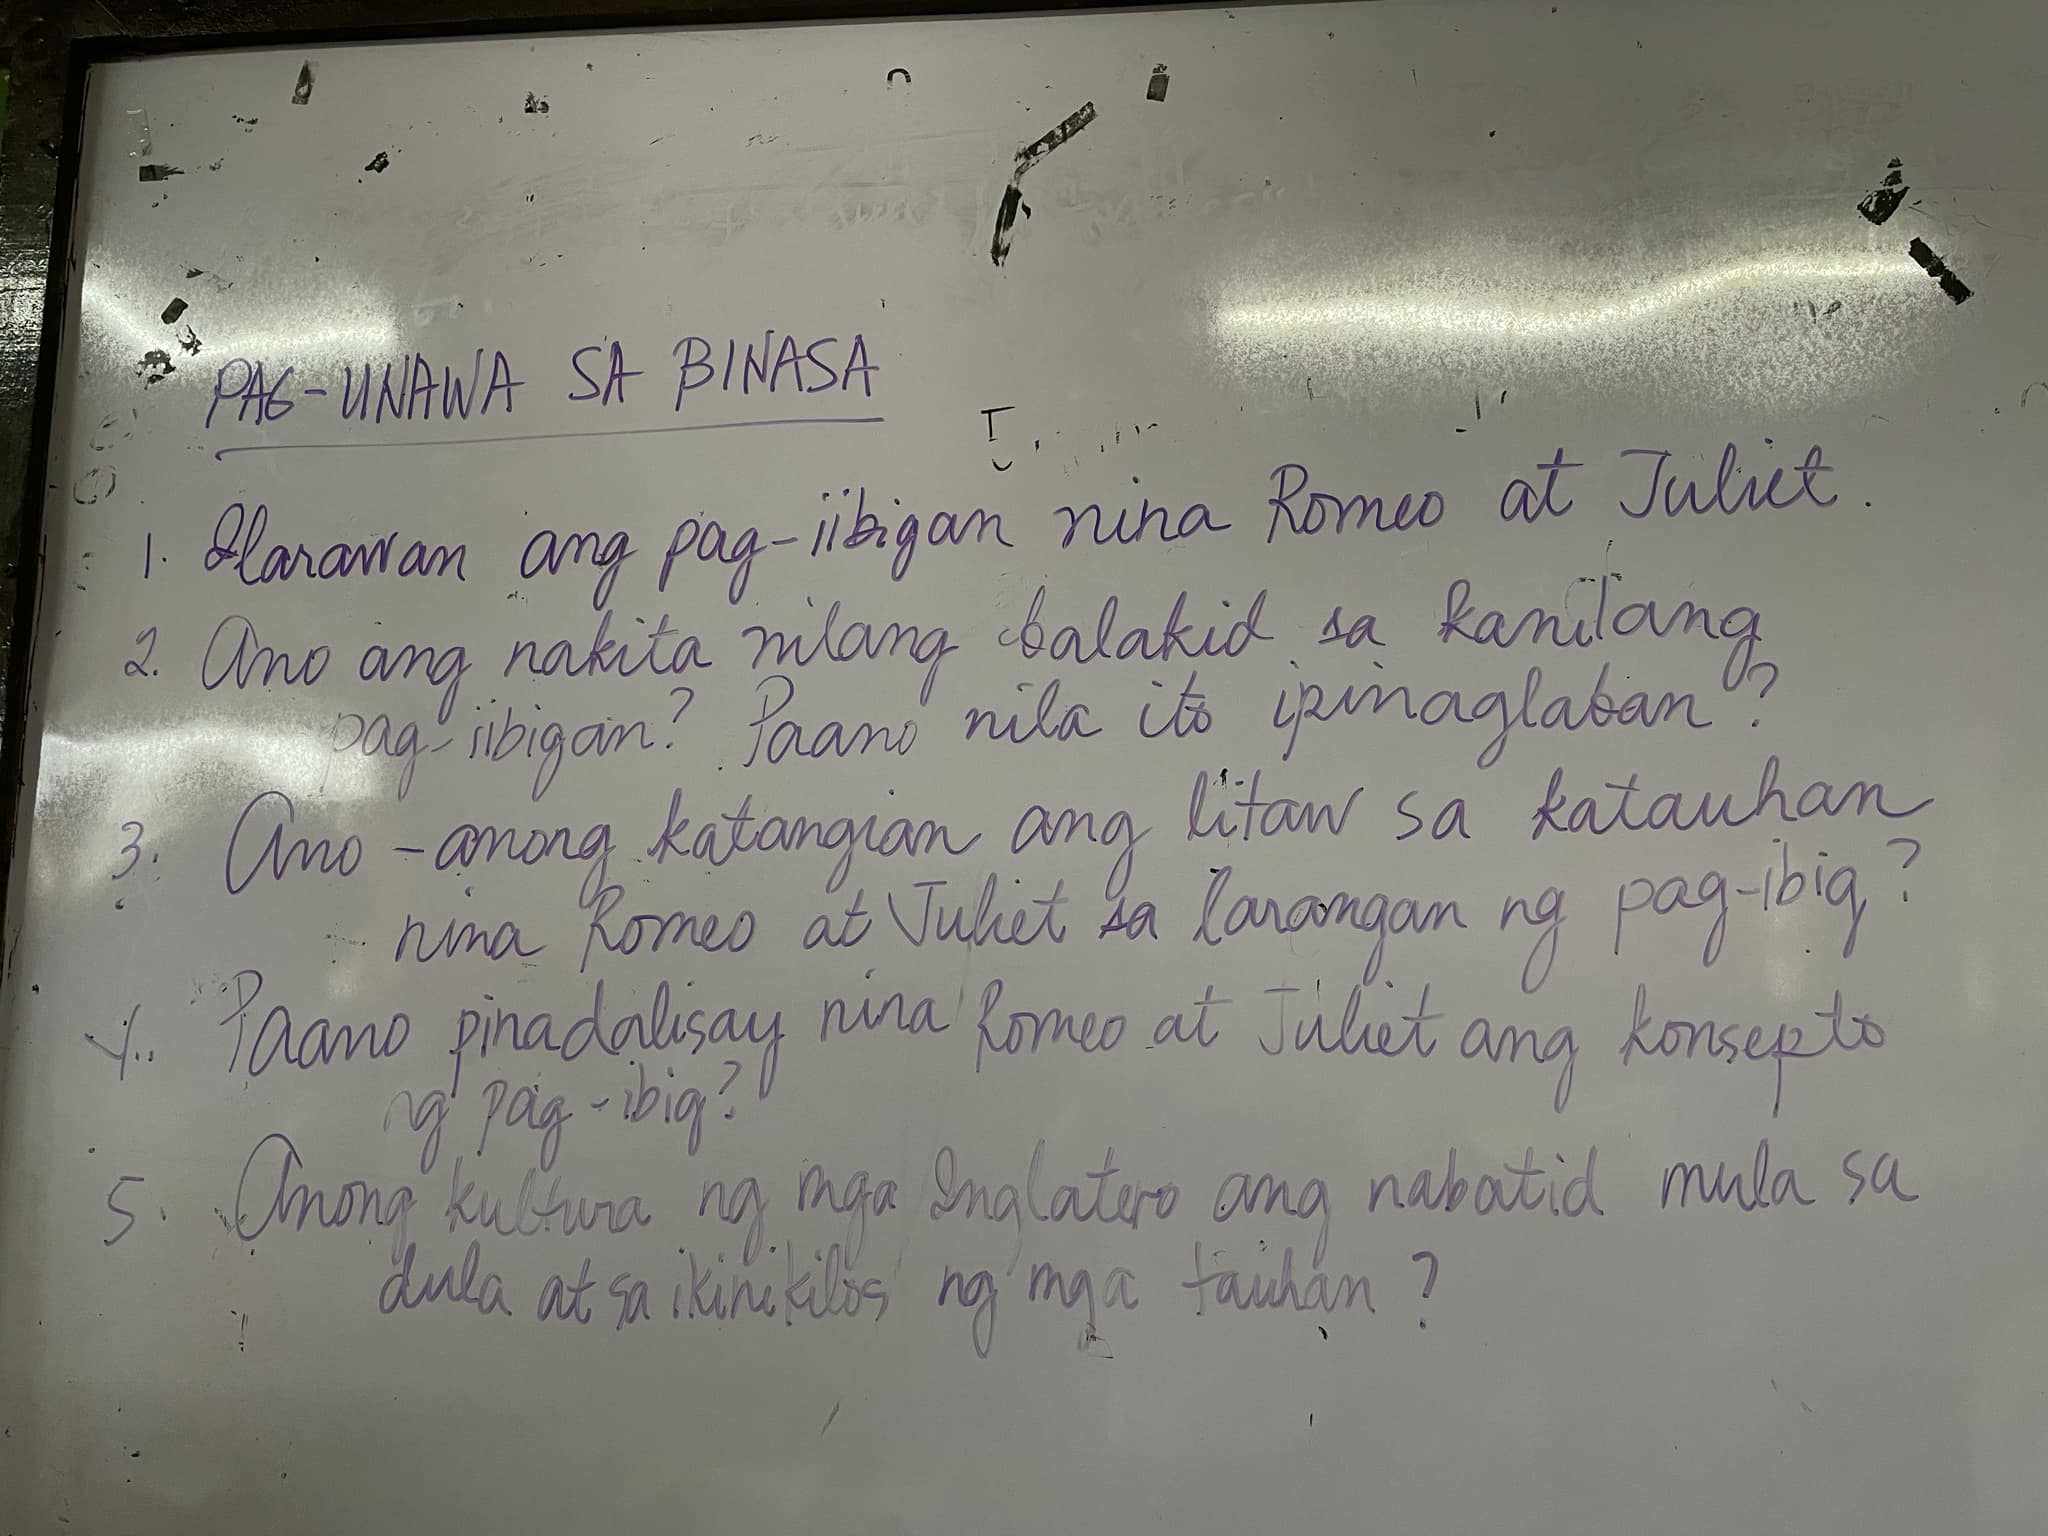 PAG-UNAWA SA BINASA
1. Ilarawan ang pag-iibigan nina Romeo at Juliet.
2. Ano ang nakita nilang balakid sa kanilang
pag-iibigan? Paano nila ito ipinaglaban?
3. Ano-anong katangian ang litaw sa katauhan
nina Romeo at Juliet sa larangan ng pag-ibig?
4. Paano pinadalisay nina Romeo at Juliet ang konsepto
ng pag-ibig?
5. Anong kultura ng mga Inglatero ang nabatid mula sa
dula at sa ikinikilos ng mga tauhan?